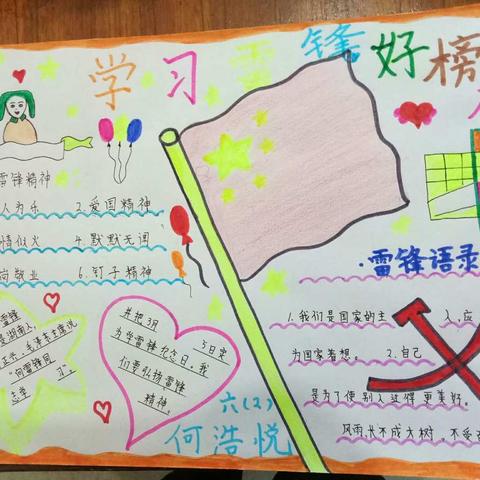 学习雷锋好榜
雷锋精神
人为乐 2.爱国精神
情似火 4.默默无闻
岗敬业 6.钉子精神
雷锋
是湖南人,
毛泽东主席说
"向雷锋同
志学习"。
并把3月5日定
为学雷锋纪念日。我
们要弘扬雷锋
精神。
六(2)
何浩悦
雷锋语录
1.我们是国家的主人,应
为国家着想。2.自己
是为了使别人过得更美好。
风雨,长不成大树,不受